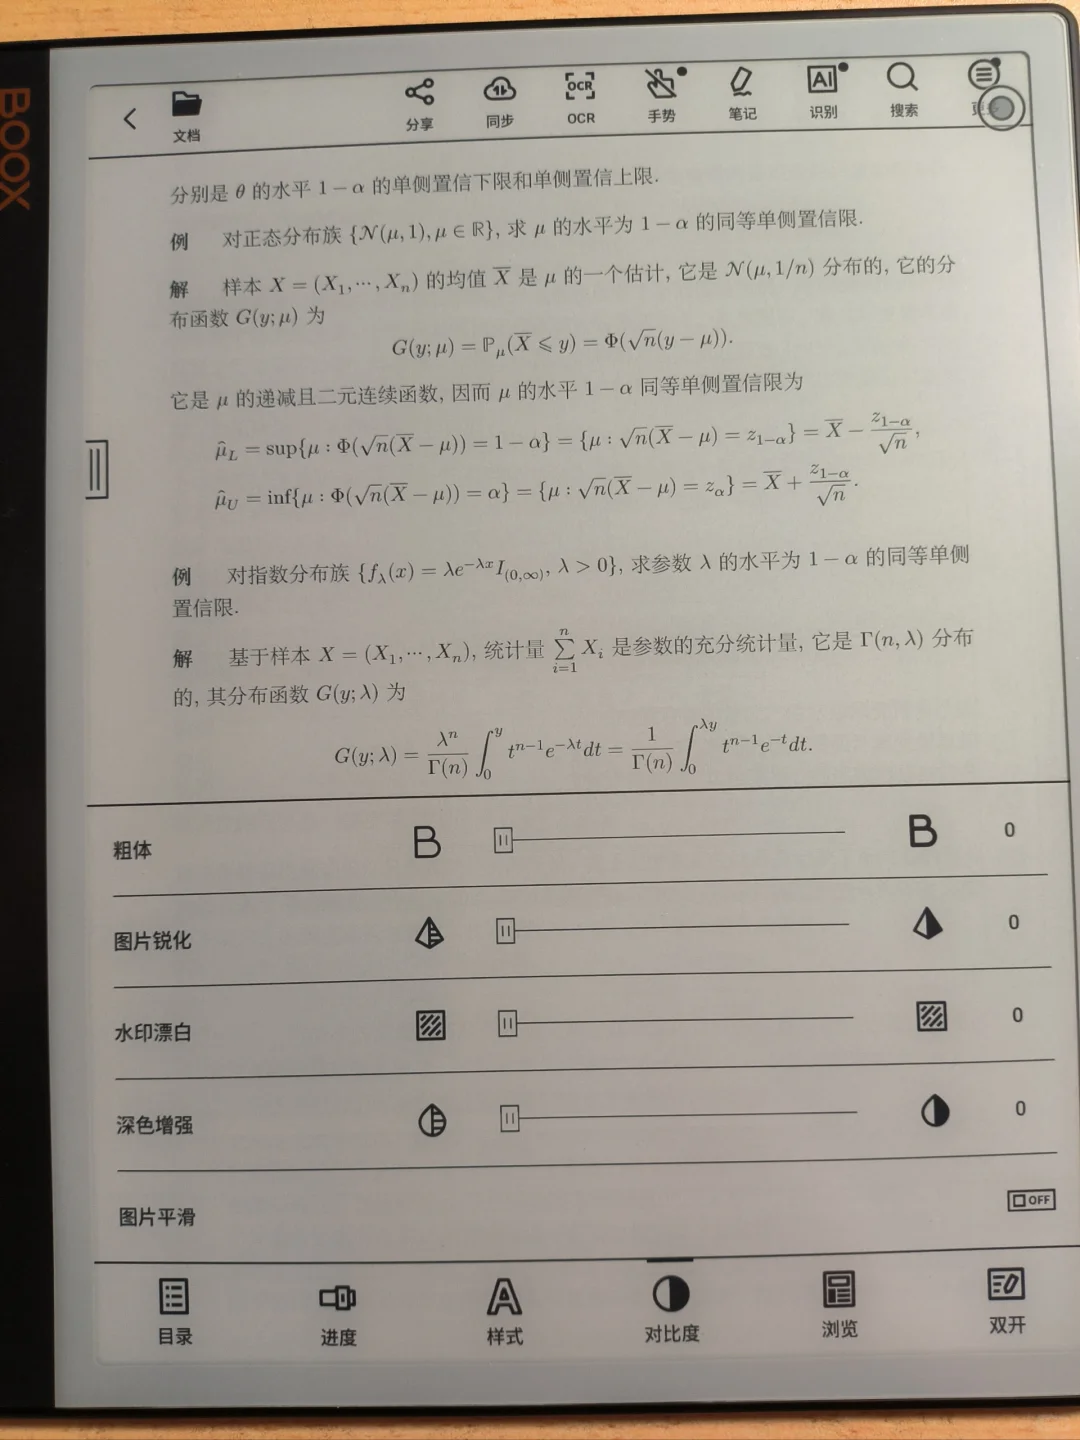 BOOX
文档
分享
同步
OCR
OCR
手势
笔记
AI
识别
搜索
分别是 θ 的水平 1 − α 的单侧置信下限和单侧置信上限.
例 对正态分布族 {𝒩(μ, 1), μ ∈ ℝ}, 求 μ 的水平为 1 − α 的同等单侧置信限.
解 样本 X = (X₁, ⋯, Xₙ) 的均值 X̅ 是 μ 的一个估计, 它是 𝒩(μ, 1/n) 分布的, 它的分
布函数 G(y; μ) 为
G(y; μ) = ℙ_μ(X̅ ⩽ y) = Φ(√n(y − μ)).
它是 μ 的递减且二元连续函数, 因而 μ 的水平 1 − α 同等单侧置信限为
μ̂_L = sup{μ : Φ(√n(X̅ − μ)) = 1 − α} = {μ : √n(X̅ − μ) = z_{1−α}} = X̅ − z_{1−α}/√n,
μ̂_U = inf{μ : Φ(√n(X̅ − μ)) = α} = {μ : √n(X̅ − μ) = z_α} = X̅ + z_{1−α}/√n.
例 对指数分布族 {f_λ(x) = λe^{−λx}I_{(0,∞)}, λ > 0}, 求参数 λ 的水平为 1 − α 的同等单侧
置信限.
解 基于样本 X = (X₁, ⋯, Xₙ), 统计量 ∑_{i=1}^{n} X_i 是参数的充分统计量, 它是 Γ(n, λ) 分布
的, 其分布函数 G(y; λ) 为
G(y; λ) = λⁿ/Γ(n) ∫₀^y t^{n−1}e^{−λt}dt = 1/Γ(n) ∫₀^{λy} t^{n−1}e^{−t}dt.
粗体 B B 0
图片锐化 0
水印漂白 0
深色增强 0
图片平滑 OFF
目录
进度
样式
对比度
浏览
双开